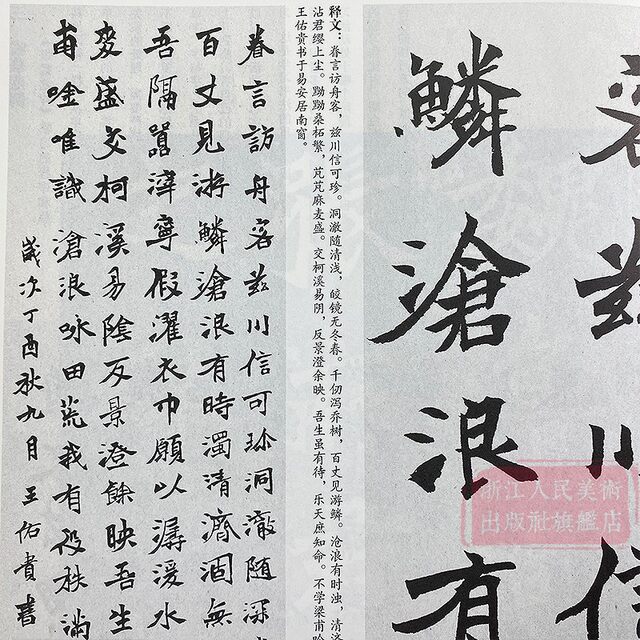 客茲川信
鱗滄浪有
释文：眷言访舟客，兹川信可珍。洞澈随清浅，皎镜无冬春。千仞泻乔树，百丈见游鳞。沧浪有时浊，清济
沾君缨上尘。黝黝桑柘繁，芃芃麻麦盛。交柯溪易阴，反景澄余映。吾生虽有待，乐天庶知命。不学梁甫吟
王佑贵书于易安居南窗。
眷言訪舟客茲川信可珍洞澈隨深
百丈見游鱗滄浪有時濁清濟涸無
吾隔囂滓寧假濯衣巾願以潺湲水
麥盛交柯溪易陰反景澄餘映吾生
甫唫唯識滄浪咏田荒我有役秩滿
歲次丁酉秋九月王佑貴書
浙江人民美術
出版社旗艦店